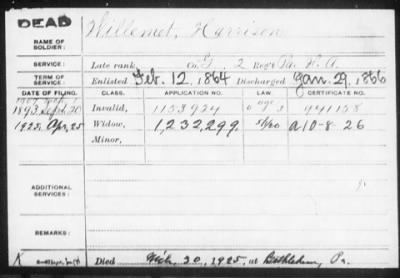 DEAD
Willemet, Harrison
NAME OF SOLDIER:
SERVICE: Late rank, Co. G 2 Reg't Pa. H. A.
TERM OF SERVICE: Enlisted Feb. 12, 1864 Discharged Jan. 29, 1866
DATE OF FILING. CLASS. APPLICATION NO. LAW CERTIFICATE NO.
1893 Sept. 20 Invalid, 1153924 age 941158
1925, Apr. 25 Widow, 1,232,299 a 10-8-26
Minor,
ADDITIONAL SERVICES:
REMARKS:
K Died Mch. 20, 1925, at Bethlehem, Pa.